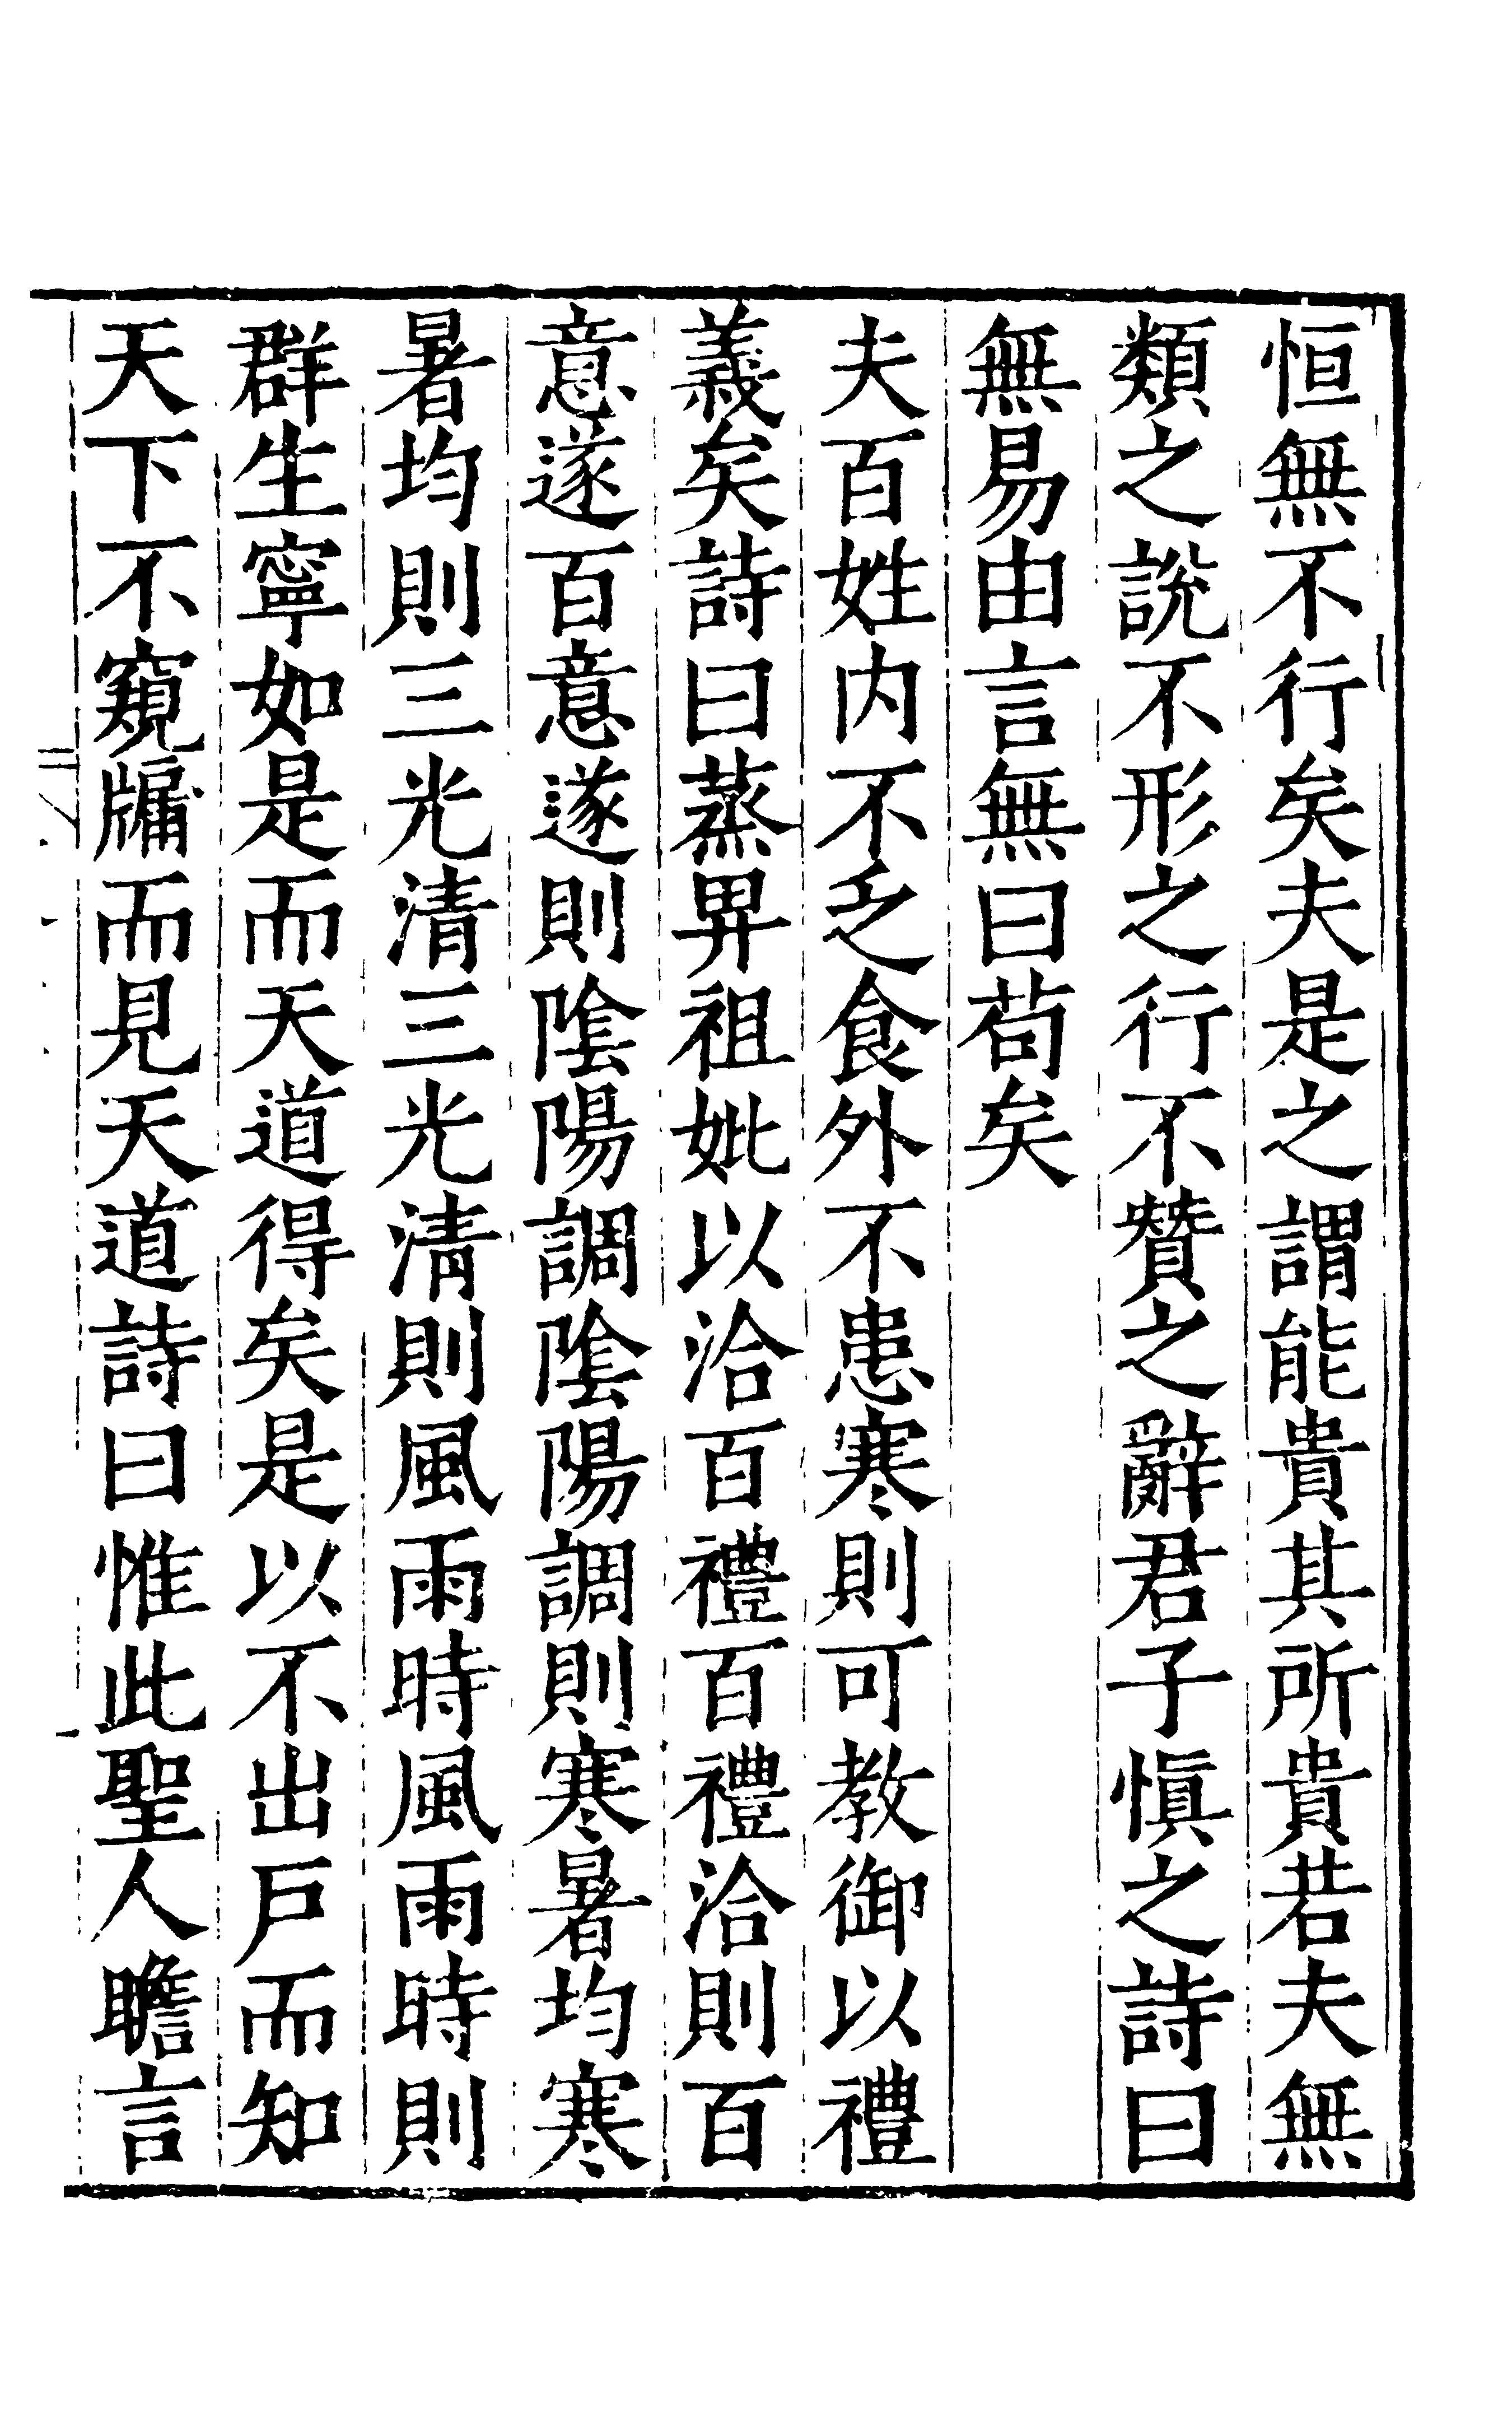 恒無不行矣夫是之謂能貴其所貴若夫無
類之說不形之行不贊之辭君子慎之詩曰
無易由言無曰苟矣
夫百姓内不乏食外不患寒則可教御以禮
義矣詩曰蒸畀祖妣以洽百禮百禮洽則百
意遂百意遂則陰陽調陰陽調則寒暑均寒
暑均則三光清三光清則風雨時風雨時則
群生寧如是而天道得矣是以不出戶而知
天下不窺牖而見天道詩曰惟此聖人瞻言